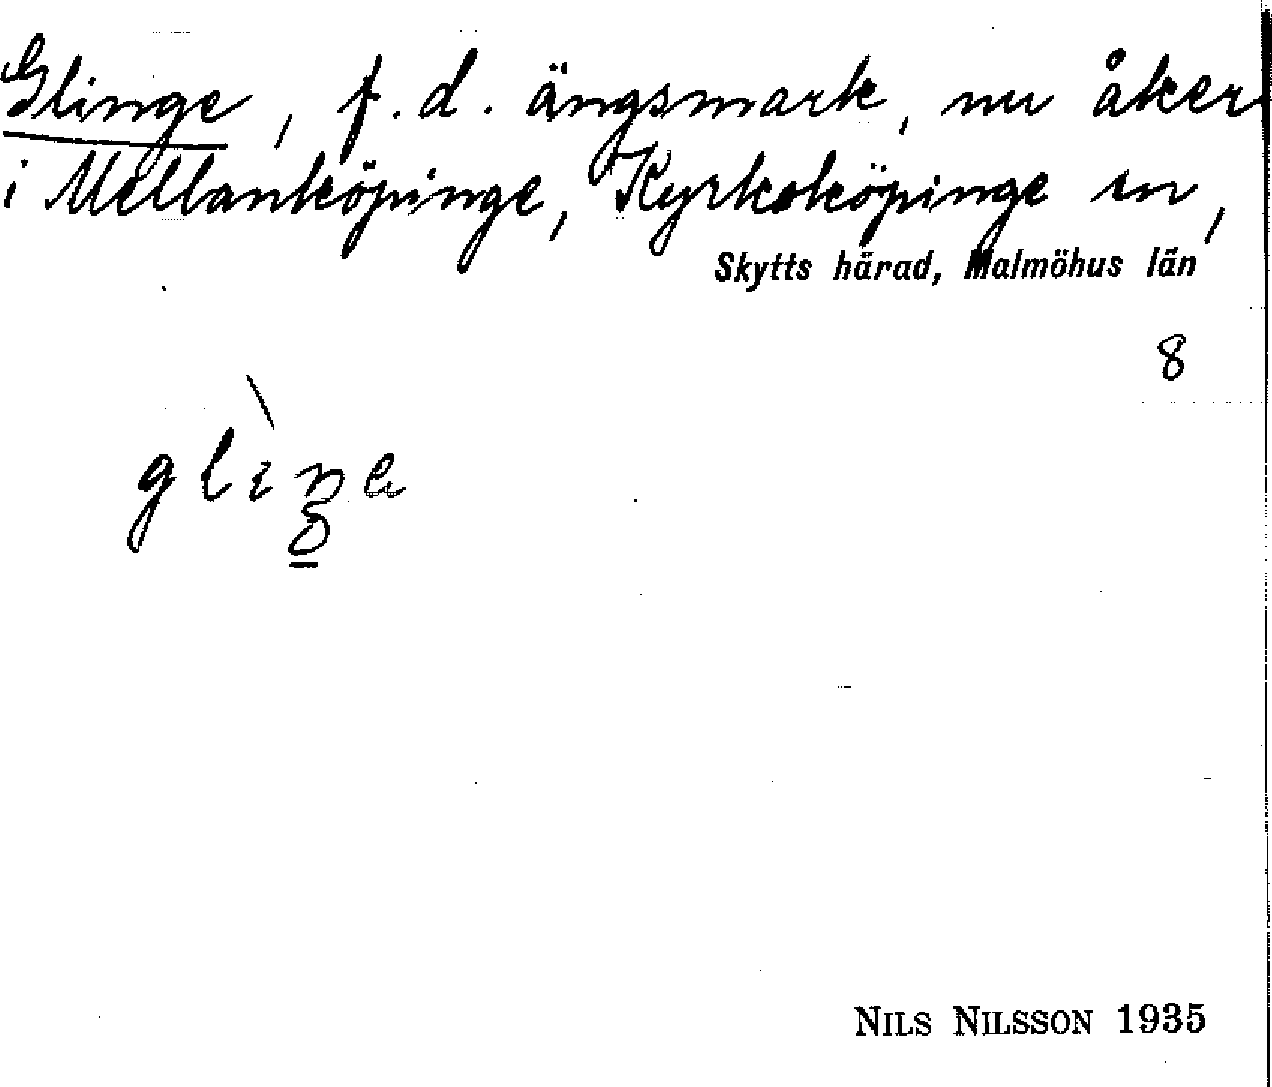 Glinge, f.d. ängsmark, nu åker
i Mellanköpinge, Kyrkoköpinge sn,
Skytts härad, Malmöhus län
8
NILS NILSSON 1935